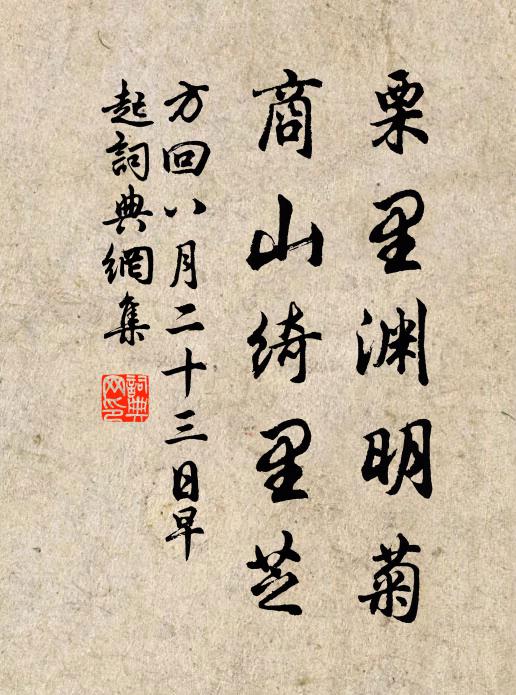 栗里渊明菊
商山绮里芝
方回八月二十三日早
起詞典網集
詞典
网印